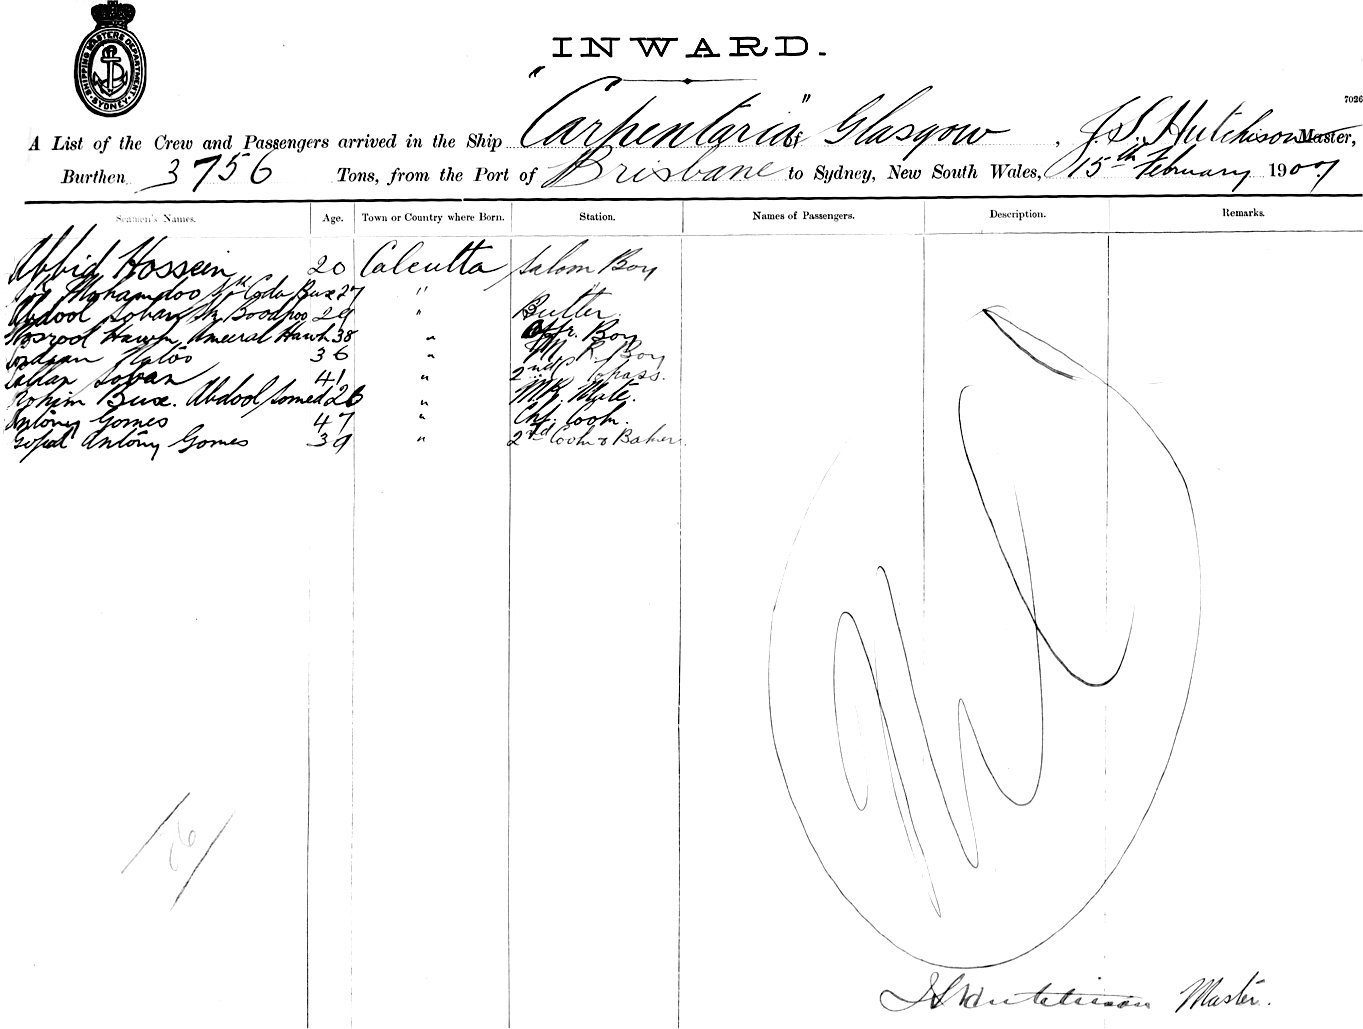 SHIPPING MASTERS DEPARTMENT SYDNEY
INWARD.
7026
A List of the Crew and Passengers arrived in the Ship "Carpentaria" of Glasgow, J. S. Hutchison Master,
Burthen 3756 Tons, from the Port of Brisbane to Sydney, New South Wales, 15th February 1907
Seamen's Names. Age. Town or Country where Born. Station. Names of Passengers. Description. Remarks.
Abbid Hossein 20 Calcutta Saloon Boy
Mohamdoo Coda Bux 27 "
Abdool Soban Sk Boodhoo 29 " Butler
38 " Boy
36 " M. R. Boy
Soban 41 " 2nd Class.
Rohim Bux. Abdool Somed 26 " M.R. Mate.
Antony Gomes 47 " Chf. Cook.
Antony Gomes 39 " 2nd Cook & Baker
Nil
16
J S Hutchison Master.